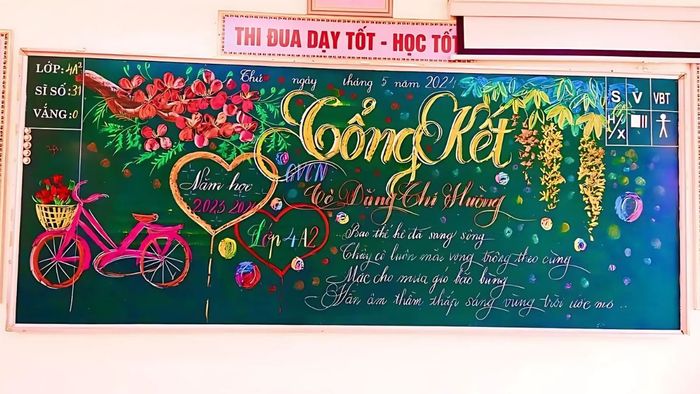 THI ĐUA DẠY TỐT - HỌC TỐT
LỚP: 4A2
SĨ SỐ: 31
VẮNG: 0
Thứ ngày tháng 5 năm 2024
Tổng Kết
S V VBT
H/X
GVCN
Cô Đặng Thị Hường
Năm học
2023 2024
Lớp 4A2
Bao thế hệ đã sang sông
Thầy cô luôn mãi vọng trông theo cùng
Mặc cho mưa gió bão bùng
Vẫn âm thầm thắp sáng vùng trời ước mơ..